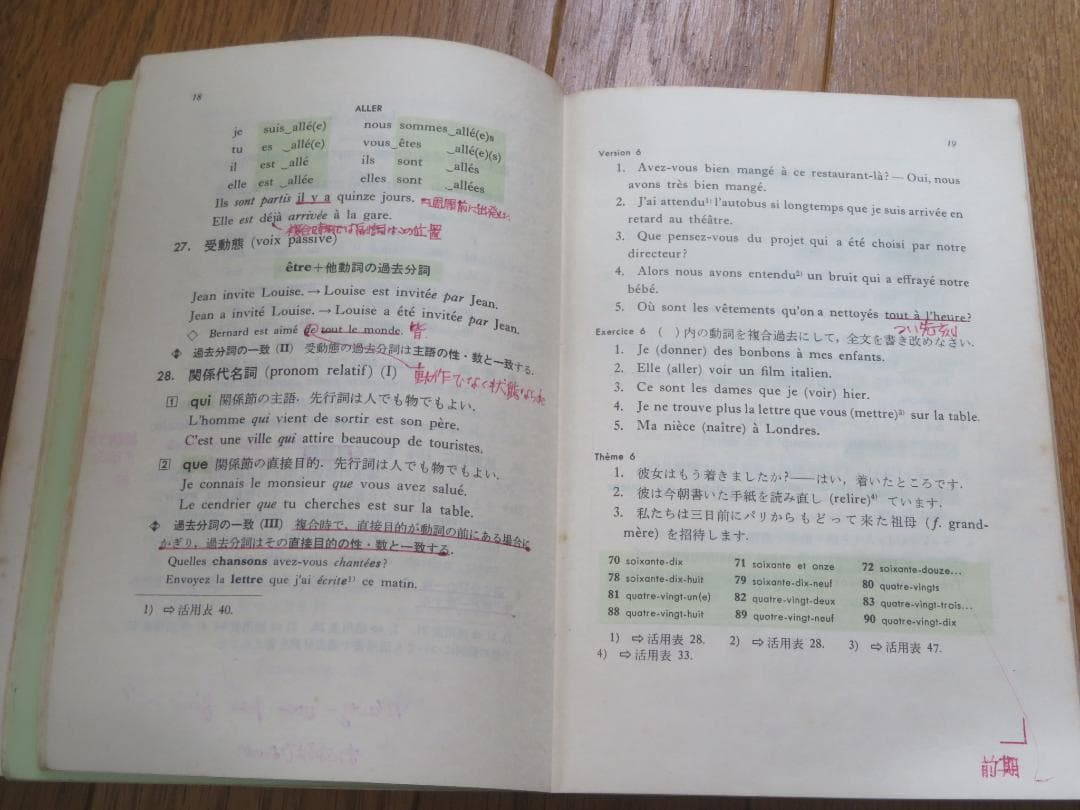 18
ALLER
je suis‿allé(e) nous sommes‿allé(e)s
tu es ‿allé(e) vous‿êtes ‿allé(e)(s)
il est ‿allé ils sont ‿allés
elle est ‿allée elles sont ‿allées
Ils sont partis il y a quinze jours.
Elle est déjà arrivée à la gare.
の位置
27. 受動態 (voix passive)
être+他動詞の過去分詞
Jean invite Louise. → Louise est invitée par Jean.
Jean a invité Louise. → Louise a été invitée par Jean.
◇ Bernard est aimé de tout le monde. 皆
過去分詞の一致 (II) 受動態の過去分詞は主語の性・数と一致する.
動作でなく状態なら
28. 関係代名詞 (pronom relatif) (I)
1 qui 関係節の主語. 先行詞は人でも物でもよい.
L'homme qui vient de sortir est son père.
C'est une ville qui attire beaucoup de touristes.
2 que 関係節の直接目的. 先行詞は人でも物でもよい.
Je connais le monsieur que vous avez salué.
Le cendrier que tu cherches est sur la table.
過去分詞の一致 (III) 複合時で, 直接目的が動詞の前にある場合に
かぎり, 過去分詞はその直接目的の性・数と一致する.
Quelles chansons avez-vous chantées?
Envoyez la lettre que j'ai écrite1) ce matin.
1) ⇨活用表 40.
19
Version 6
1. Avez-vous bien mangé à ce restaurant-là? — Oui, nous
avons très bien mangé.
2. J'ai attendu1) l'autobus si longtemps que je suis arrivée en
retard au théâtre.
3. Que pensez-vous du projet qui a été choisi par notre
directeur?
4. Alors nous avons entendu2) un bruit qui a effrayé notre
bébé.
5. Où sont les vêtements qu'on a nettoyés tout à l'heure?
つい先刻
Exercice 6 ( )内の動詞を複合過去にして, 全文を書き改めなさい.
1. Je (donner) des bonbons à mes enfants.
2. Elle (aller) voir un film italien.
3. Ce sont les dames que je (voir) hier.
4. Je ne trouve plus la lettre que vous (mettre)3) sur la table.
5. Ma nièce (naître) à Londres.
Thème 6
1. 彼女はもう着きましたか?——はい, 着いたところです.
2. 彼は今朝書いた手紙を読み直し (relire)4) ています.
3. 私たちは三日前にパリからもどって来た祖母 (f. grand-
mère) を招待します.
70 soixante-dix 71 soixante et onze 72 soixante-douze...
78 soixante-dix-huit 79 soixante-dix-neuf 80 quatre-vingts
81 quatre-vingt-un(e) 82 quatre-vingt-deux 83 quatre-vingt-trois...
88 quatre-vingt-huit 89 quatre-vingt-neuf 90 quatre-vingt-dix
1) ⇨活用表 28. 2) ⇨活用表 28. 3) ⇨活用表 47.
4) ⇨活用表 33.
前期